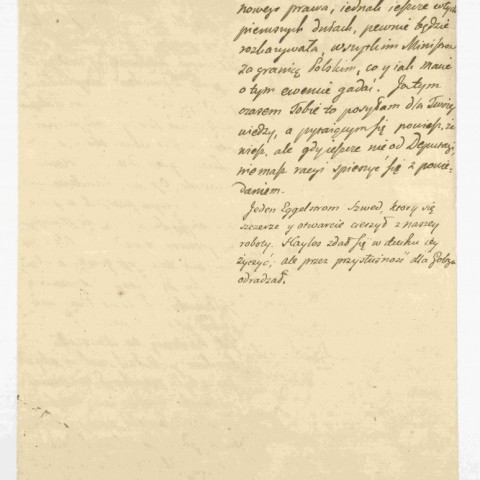 nowego prawa, iednak ieszcze w tych
pierwszych dniach, pewnie będzie
rozkazywała, wszystkim Ministrom
Zagranicą Polskim, co y iak maią
o tym ewencie gadać. Ja tym
czasem Tobie to posyłam dla Twoiey
wiedzy, a pytaiącym się powiesz, że
wiesz, ale gdy ieszcze nie od Deputacyi,
nie masz racyi spieszyć się z powie-
daniem.
Jeden Eggelstrom Szwed, który się
szczerze y otwarcie cieszył z naszey
roboty. Kaylos zdał się w duchu iey
życzyć, ale przez przystuyność dla
odradzał.